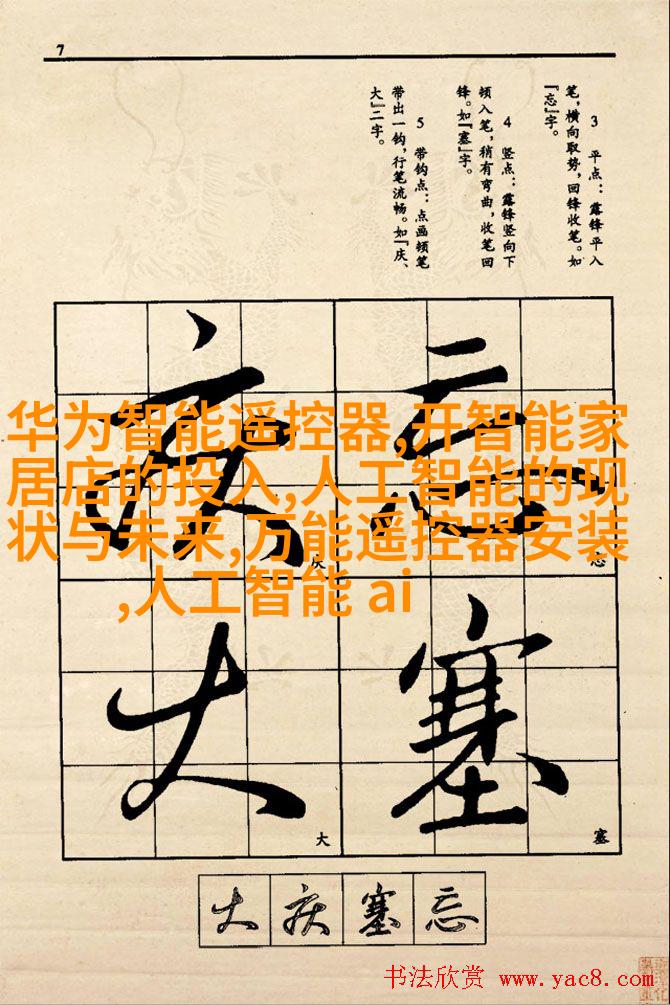 7
3 平点：露锋平入
笔，横向取势，回锋收笔。如
『忘』字。
4 竖点：露锋竖向下
顿入笔，稍有弯曲，收笔回
锋。如『塞』字。
5 带钩点：点画顿笔
带出一钩，行笔流畅。如『庆、
大』二字。
华为智能遥控器,开智能家
居店的投入,人工智能的现
状与未来,万能遥控器安装
,人工智能 ai
庆 忘
庆 忘
大 塞
大 塞
大 庆 塞 忘
书法欣赏 www.yac8.com